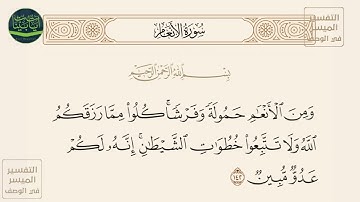 التفسير
الميسر
في الوصف
سُورَةُ الأَنْعَامِ
بِسْمِ اللَّهِ الرَّحْمَٰنِ الرَّحِيمِ
وَمِنَ ٱلْأَنْعَٰمِ حَمُولَةً وَفَرْشًا ۚ كُلُوا۟ مِمَّا رَزَقَكُمُ
ٱللَّهُ وَلَا تَتَّبِعُوا۟ خُطُوَٰتِ ٱلشَّيْطَٰنِ ۚ إِنَّهُۥ لَكُمْ
عَدُوٌّ مُّبِينٌ ١٤٢
التفسير
الميسر
في الوصف